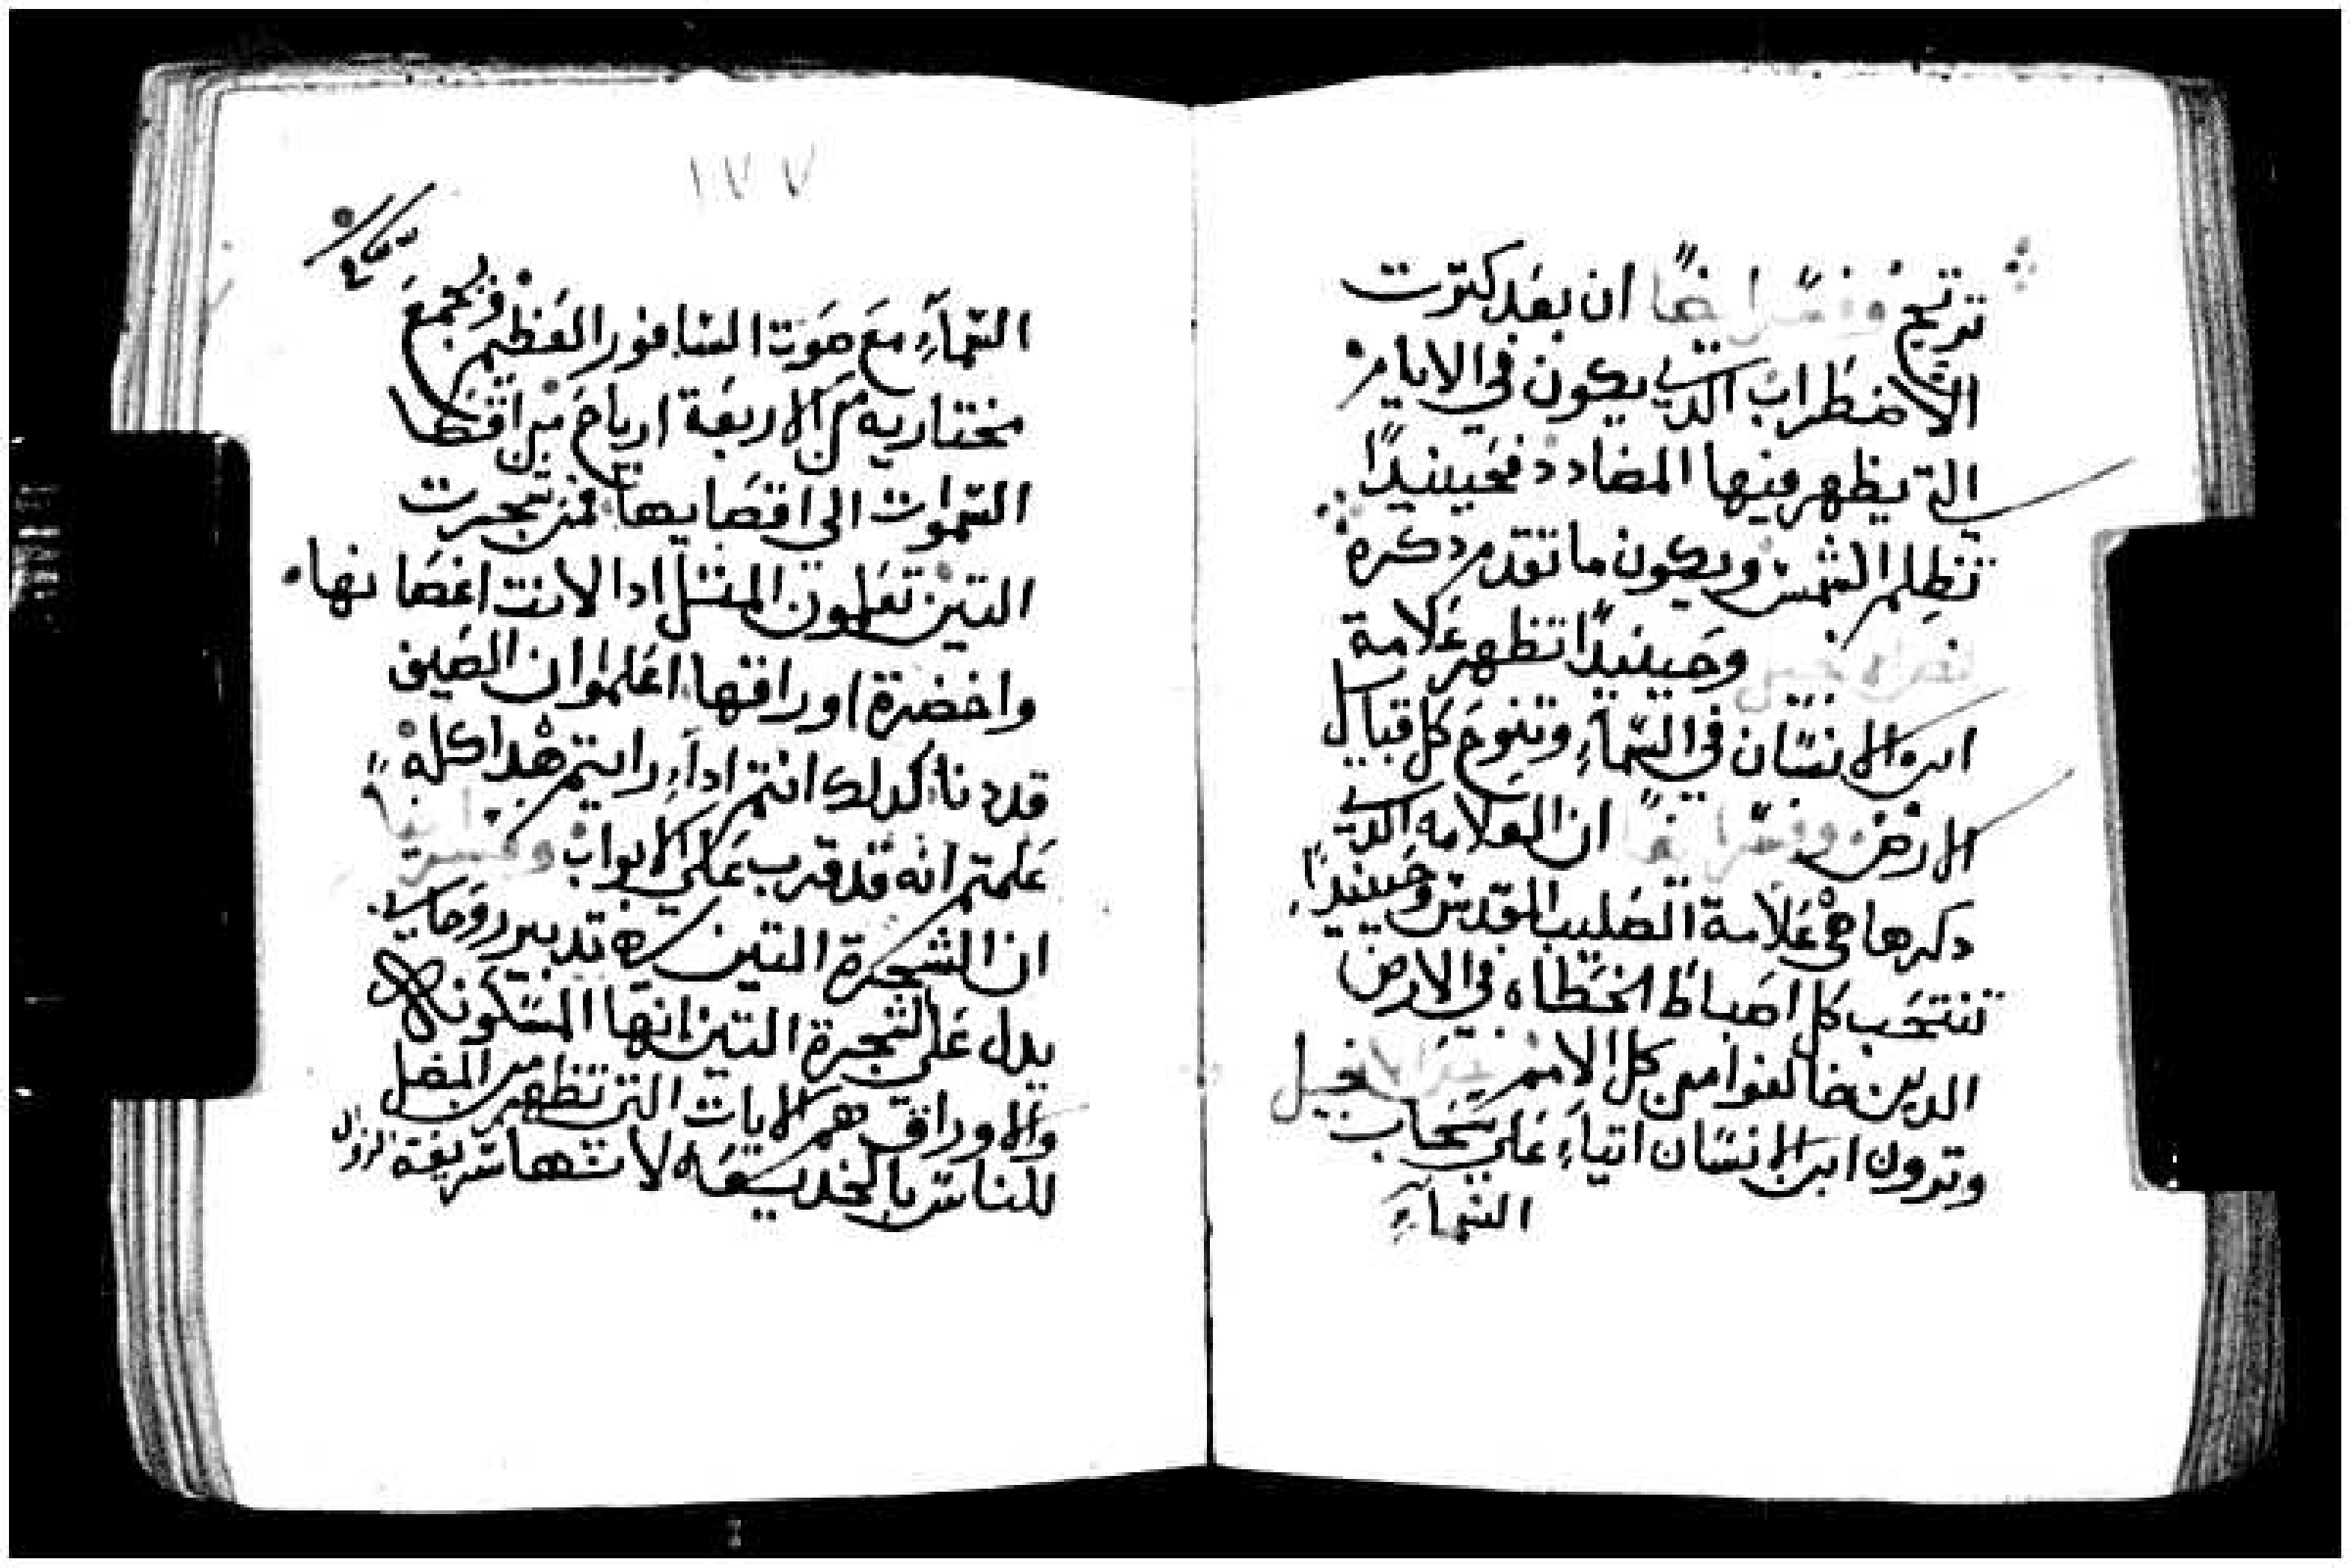 ترتج وفسر ايضاً ان بعد كترت
الاضطراب الدي يكون في الايام
التي يظهر فيها المضادد فحينيداً
تظلم الشمس ويكون ما تقدم دكره
وحينيداً تظهر علامة
ابن الانسان في السماء وتنوح كل قبايل
الارض وفسر ايضاً ان العلامه الدي
دكرها هي علامة الصليب المقدس وحينيداً
تنتحب كل اصباط الخطاه في الارض
الدين خالفوا من كل الامم نص الانجيل
وترون ابن الانسان اتياً على سحاب
السماء
١٧٧
السماء مع صوت السافور العظيم ويجمع
مختاريه من الاربعة ارياح من اقصا
السموات الى اقصايها فمن شجرت
التين تعلمون المتل ادا لانت اغصانها
واخضرة اوراقها اعلموا ان الصيف
قد دنا كدلك انتم ادا رايتم هدا كله
علمتم انه قد قرب على الابواب وفسر ايضاً
ان الشجرة التين تدبير روحاني
يدل على شجرة التين انها المسكونه
والاوراق هم الايات التي تظهر من المضل
للناس بالخديعه لانها سريعة الزوال